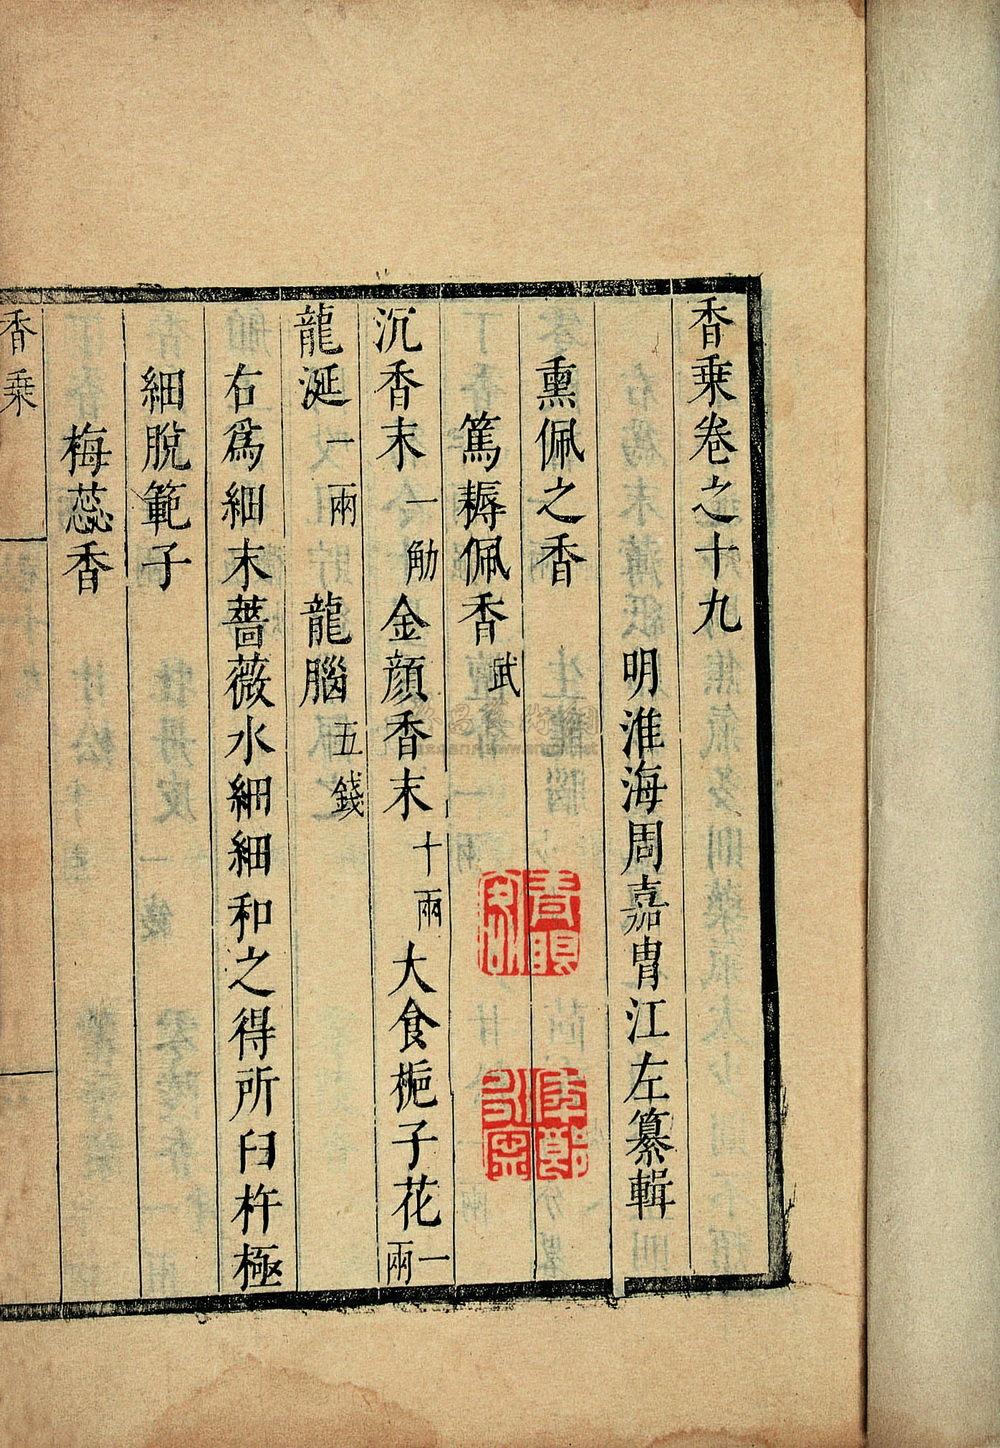 香乗卷之十九
明淮海周嘉胄江左纂輯
熏佩之香
篤耨佩香武
沉香末一觔金顔香末十兩大食梔子花一兩
龍涎一兩龍腦五錢
右爲細末薔薇水細細和之得所臼杵極
細脫範子
梅蕊香
香乗